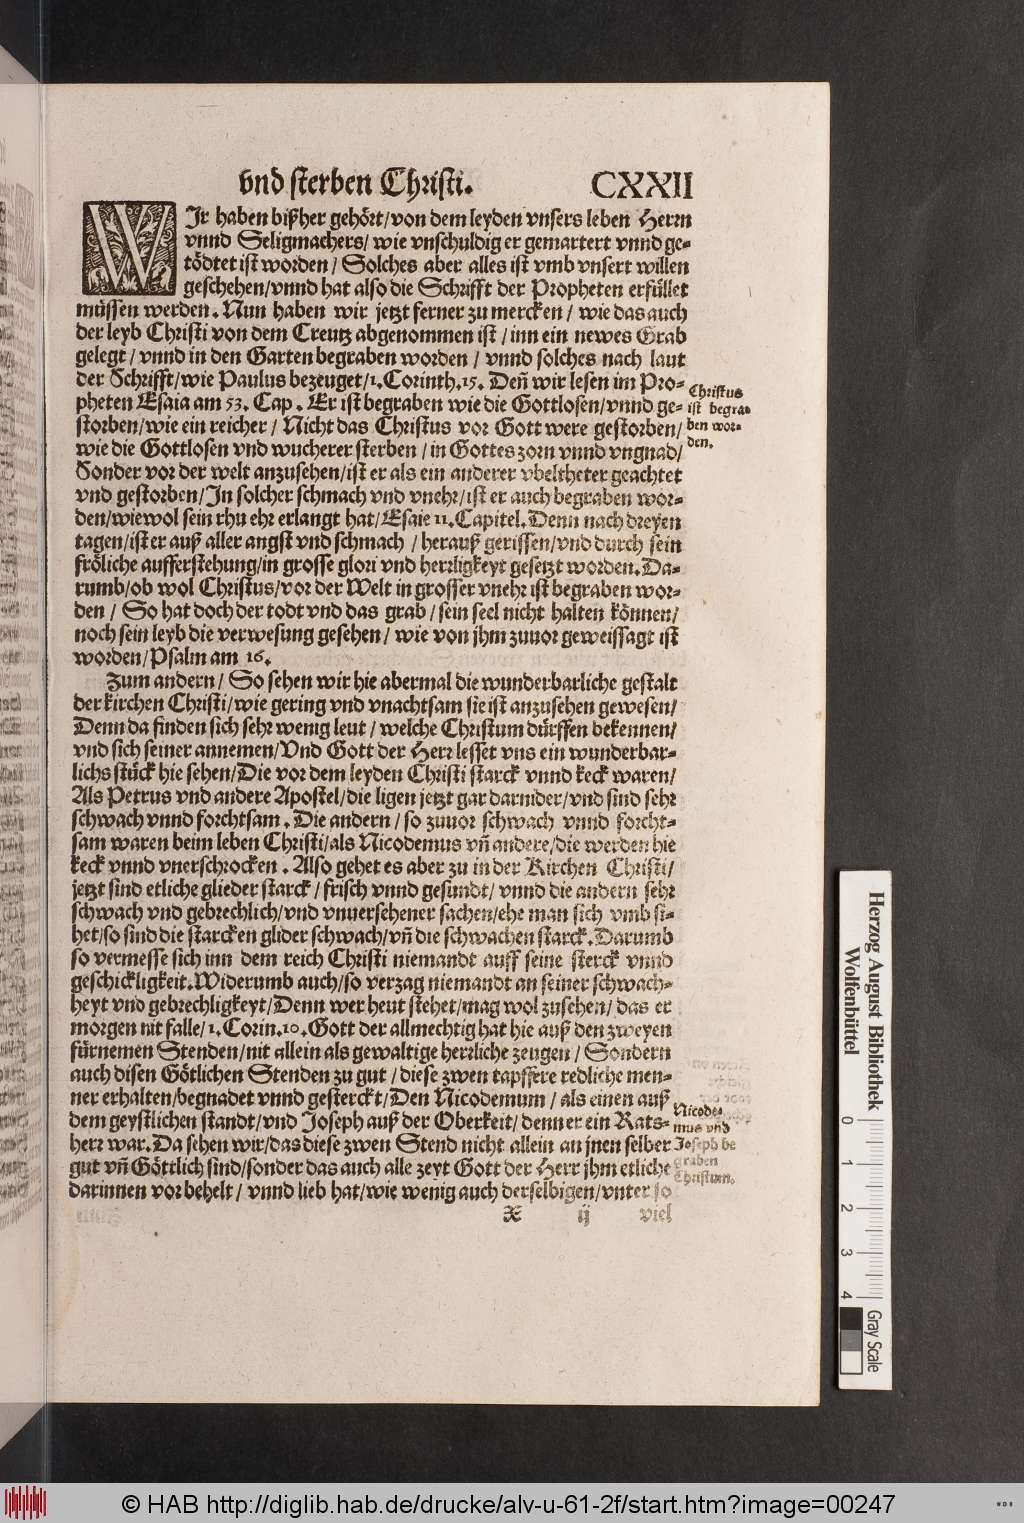 vnd sterben Christi. CXXII
WJr haben bißher gehört/ von dem leyden vnsers leben Herrn
vnnd Seligmachers/ wie vnschuldig er gemartert vnnd ge-
tödtet ist worden/ Solches aber alles ist vmb vnsert willen
geschehen/ vnnd hat also die Schrifft der Propheten erfüllet
müssen werden. Nun haben wir jetzt ferner zu mercken/ wie das auch
der leyb Christi von dem Creutz abgenommen ist/ inn ein newes Grab
gelegt/ vnnd in den Garten begraben worden/ vnnd solches nach laut
der Schrifft/ wie Paulus bezeuget/ 1. Corinth. 15. Deñ wir lesen im Pro-
pheten Esaia am 53. Cap. Er ist begraben wie die Gottlosen/ vnnd ge-
storben/ wie ein reicher/ Nicht das Christus vor Gott were gestorben/
wie die Gottlosen vnd wucherer sterben/ in Gottes zorn vnnd vngnad/
Sonder vor der welt anzusehen/ ist er als ein anderer vbeltheter geachtet
vnd gestorben/ In solcher schmach vnd vnehr/ ist er auch begraben wor-
den/ wiewol sein rhu ehr erlangt hat/ Esaie 11. Capitel. Denn nach dreyen
tagen/ ist er auß aller angst vnd schmach/ herauß gerissen/ vnd durch sein
fröliche aufferstehung/ in grosse glori vnd herrligkeyt gesetzt worden. Da-
rumb/ ob wol Christus/ vor der Welt in grosser vnehr ist begraben wor-
den/ So hat doch der todt vnd das grab/ sein seel nicht halten können/
noch sein leyb die verwesung gesehen/ wie von jhm zuuor geweissagt ist
worden/ Psalm am 16.
Christus
ist begra-
ben wor-
den.
Zum andern/ So sehen wir hie abermal die wunderbarliche gestalt
der kirchen Christi/ wie gering vnd vnachtsam sie ist anzusehen gewesen/
Denn da finden sich sehr wenig leut/ welche Christum dürffen bekennen/
vnd sich seiner annemen/ Vnd Gott der Herr lesset vns ein wunderbar-
lichs stück hie sehen/ Die vor dem leyden Christi starck vnnd keck waren/
Als Petrus vnd andere Apostel/ die ligen jetzt gar darnider/ vnd sind sehr
schwach vnnd forchtsam. Die andern/ so zuuor schwach vnnd forcht-
sam waren beim leben Christi/ als Nicodemus vñ andere/ die werden hie
keck vnnd vnerschrocken. Also gehet es aber zu in der Kirchen Christi/
jetzt sind etliche glieder starck/ frisch vnnd gesundt/ vnnd die andern sehr
schwach vnd gebrechlich/ vnd vnuersehener sachen/ ehr man sich vmb si-
het/ so sind die starcken glider schwach/ vñ die schwachen starck. Darumb
so vermesse sich inn dem reich Christi niemandt auff seine sterck vnnd
geschickligkeit. Widerumb auch/ so verzag niemandt an seiner schwach-
heyt vnd gebrechligkeyt/ Denn wer heut stehet/ mag wol zusehen/ das er
morgen nit falle/ 1. Corin. 10. Gott der allmechtig hat hie auß den zweyen
fürnemen Stenden/ nit allein als gewaltige herrliche zeugen/ Sondern
auch disen Götlichen Stenden zu gut/ diese zwen tapffere redliche men-
ner erhalten/ begnadet vnnd gesterckt/ Den Nicodemum/ als einen auß
dem geystlichen standt/ vnd Joseph auß der Oberkeit/ denn er ein Rats-
herr war. Da sehen wir/ das diese zwen Stend nicht allein an jnen selber
gut vñ Göttlich sind/ sonder das auch alle zeyt Gott der Herr jhm etliche
darinnen vorbehelt/ vnnd lieb hat/ wie wenig auch derselbigen/ vnter so
Nicode-
mus vnd
Joseph be
graben
Christum.
X ij viel
Herzog August Bibliothek
Wolfenbüttel
0 1 2 3 4
Gray Scale
© HAB http://diglib.hab.de/drucke/alv-u-61-2f/start.htm?image=00247